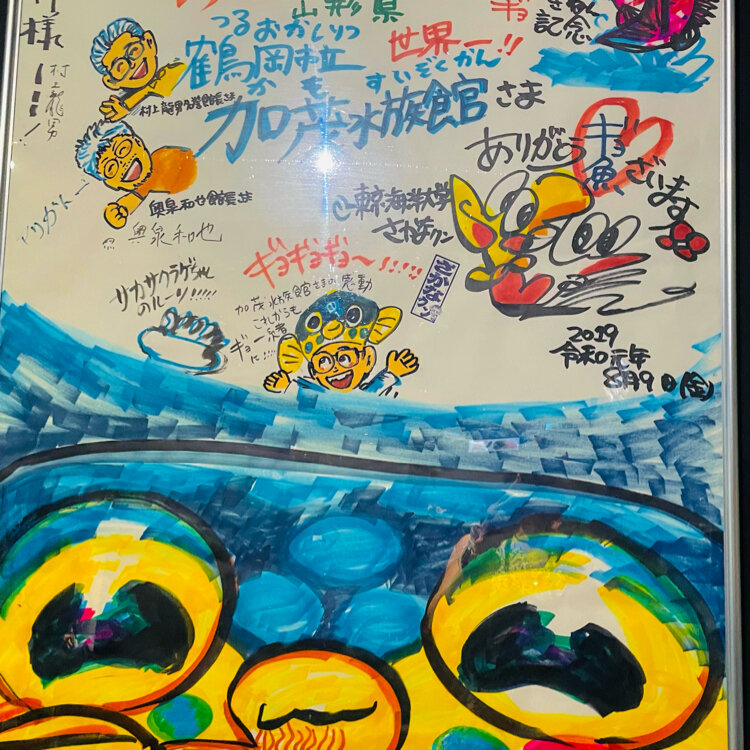 様
村上龍男
山形県
ギョ
記念
つるおかしりつ
鶴岡市立
世界一!!
かも
すいぞくかん
加茂水族館さま
村上龍男名誉館長さま
ありがとうギョざいます
魚
奥泉和也館長さま
奥泉和也
東京海洋大学
さかなクン
ギョギョギョ〜!!!!!
さかなクン
サカサクラゲちゃん
のルーツ!!!!!
加茂水族館さまの感動
これからも
ギョ一緒
に!!!!
2019
令和元年
8月9日(金)